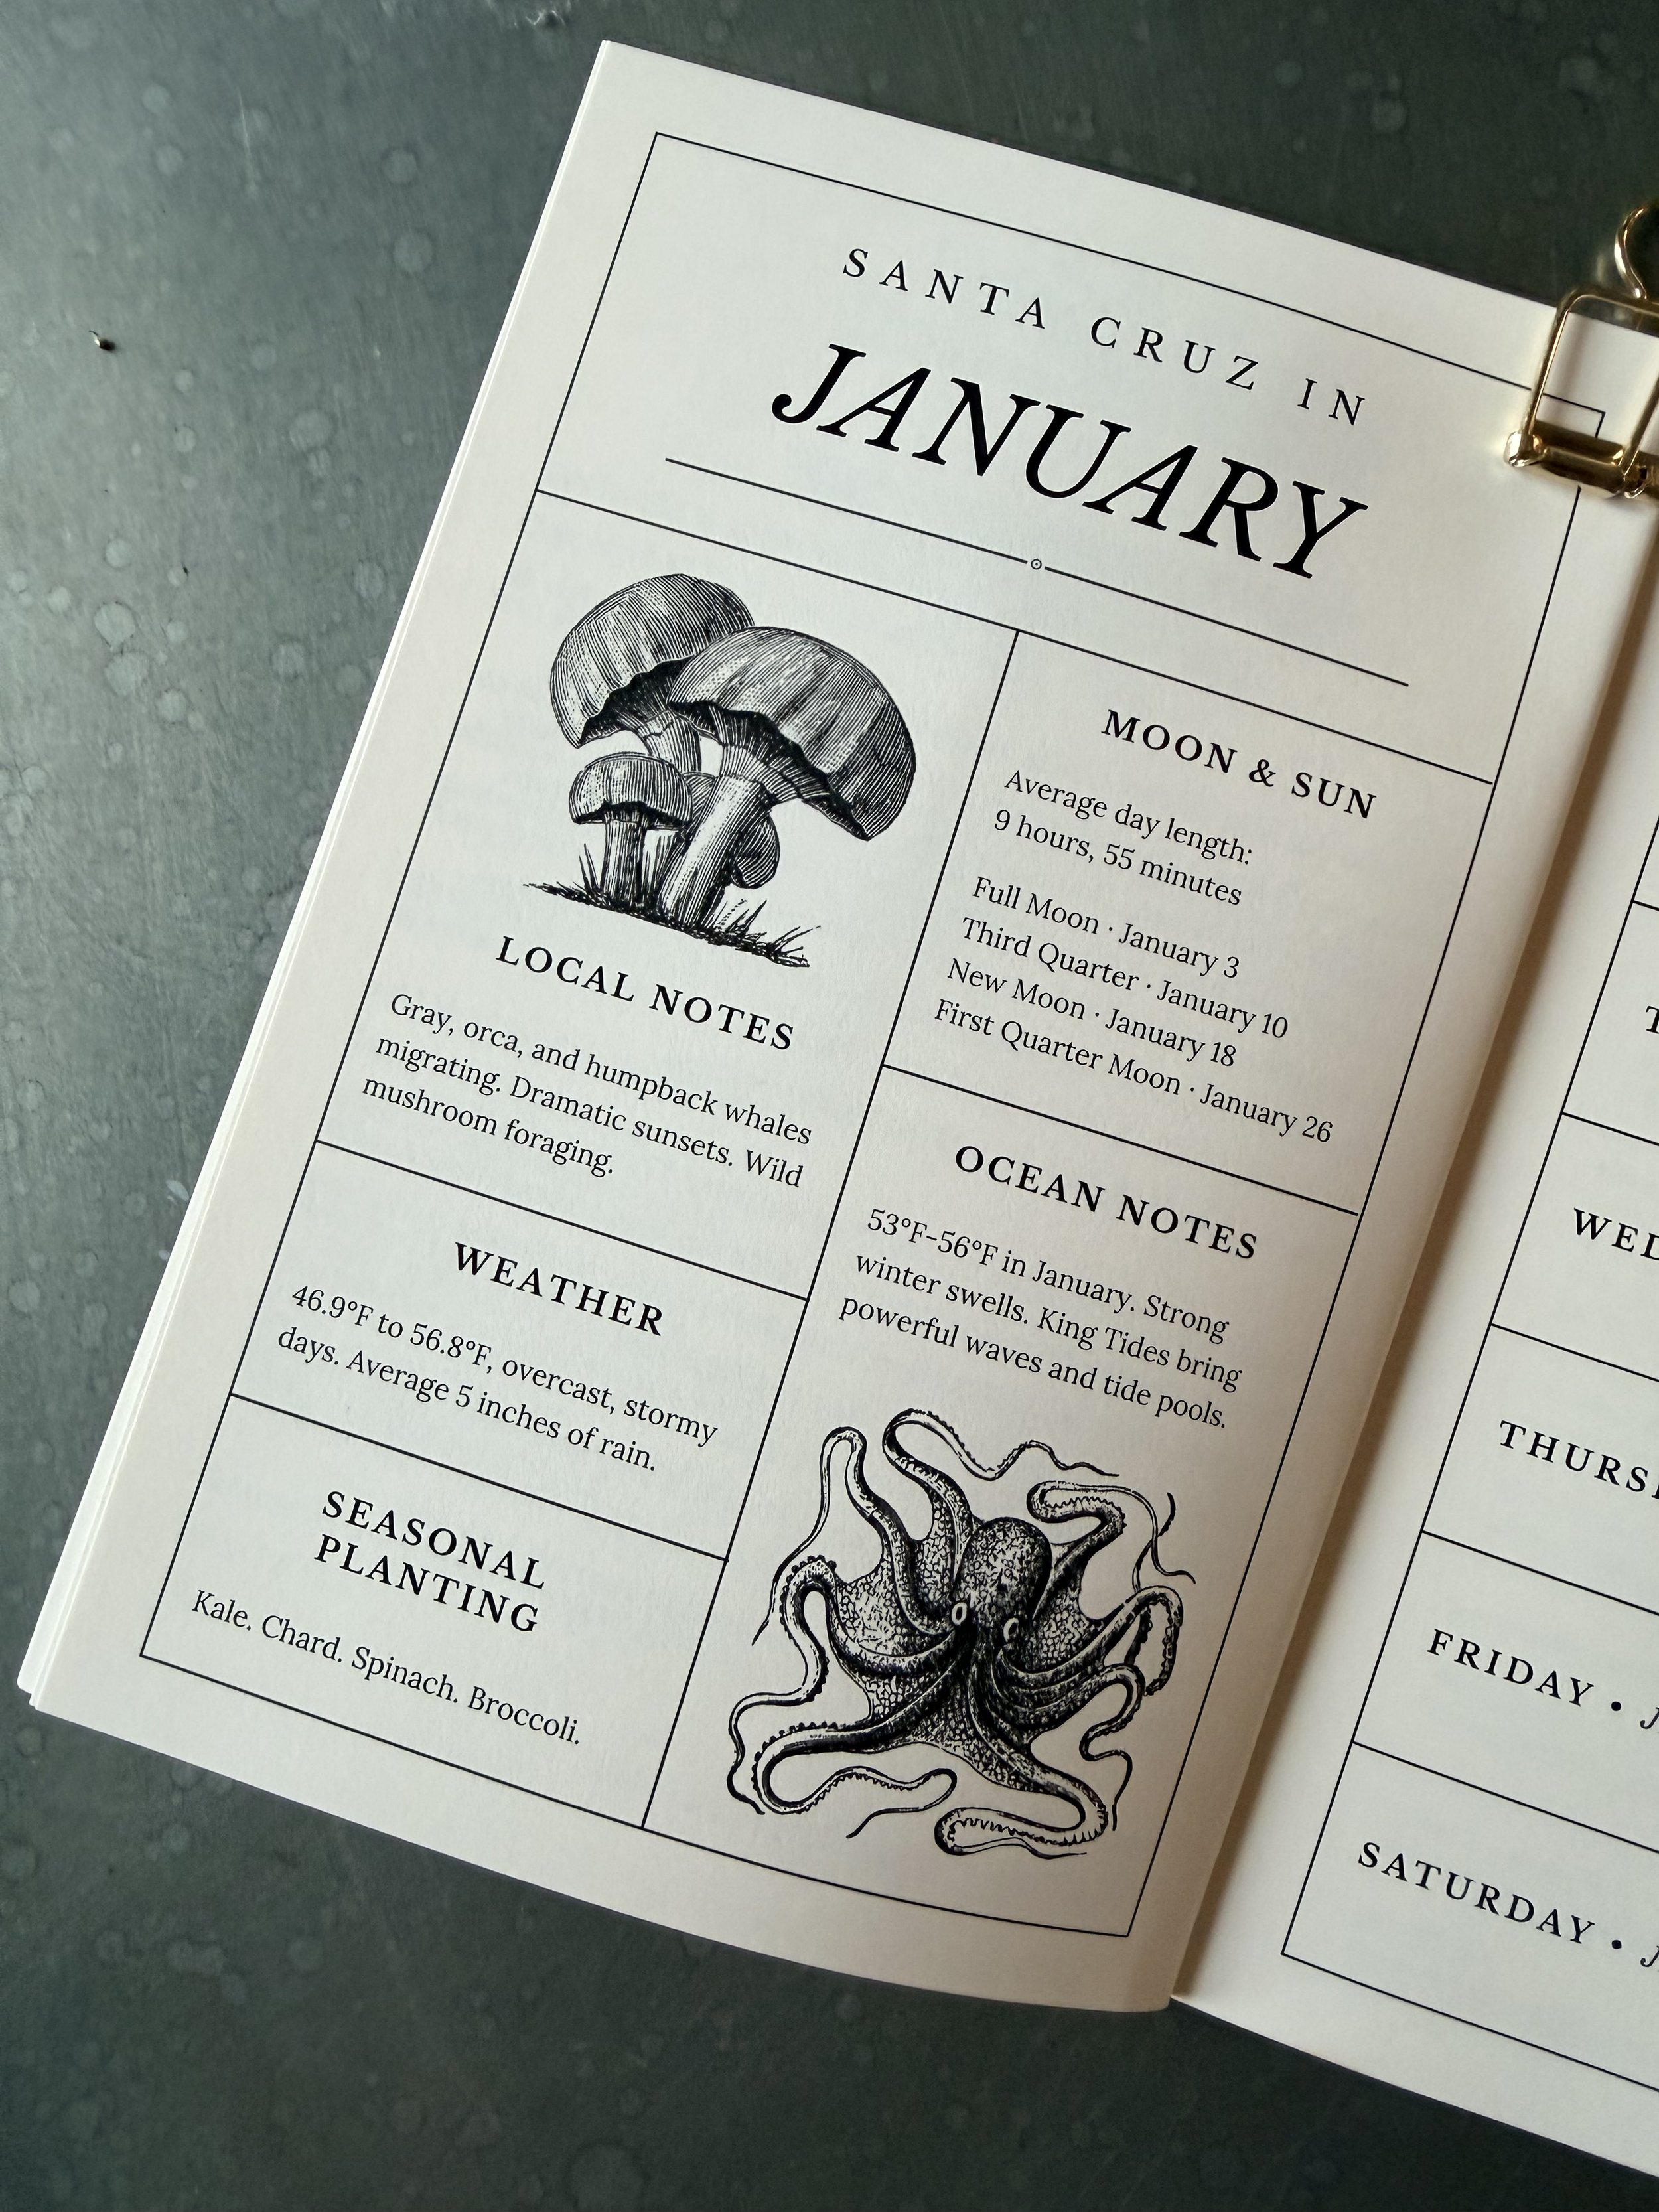 SANTA CRUZ IN
JANUARY
LOCAL NOTES
Gray, orca, and humpback whales
migrating. Dramatic sunsets. Wild
mushroom foraging.
WEATHER
46.9°F to 56.8°F, overcast, stormy
days. Average 5 inches of rain.
SEASONAL
PLANTING
Kale. Chard. Spinach. Broccoli.
MOON & SUN
Average day length:
9 hours, 55 minutes
Full Moon · January 3
Third Quarter · January 10
New Moon · January 18
First Quarter Moon · January 26
OCEAN NOTES
53°F–56°F in January. Strong
winter swells. King Tides bring
powerful waves and tide pools.
FRIDAY •
SATURDAY •